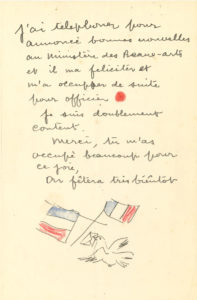 J'ai telephoner pour
annoncé bonnes nouvelles
au Ministère des Beaux-arts
et il ma feliciter et
m'a occupper de suite
pour officier
Je suis doublement
content.
Merci, tu m'as
occupé beaucoup pour
ce joie,
On fêtera très bientôt